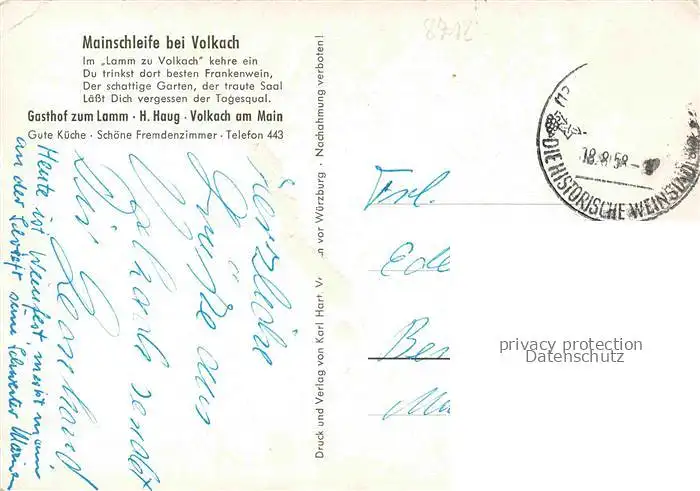 8712
Mainschleife bei Volkach
Im „Lamm zu Volkach" kehre ein
Du trinkst dort besten Frankenwein,
Der schattige Garten, der traute Saal
Läßt Dich vergessen der Tagesqual.
Gasthof zum Lamm · H. Haug · Volkach am Main
Gute Küche · Schöne Fremdenzimmer · Telefon 443
Herzliche
Grüße aus
Volkach sendet
Dir
Heute ist Weinfest, merkt man
an der Schrift
Druck und Verlag von Karl Hart, V
n vor Würzburg · Nachahmung verboten!
18.8.58-
DIE HISTORISCHE WEINSTADT
Frl.
privacy protection
Datenschutz